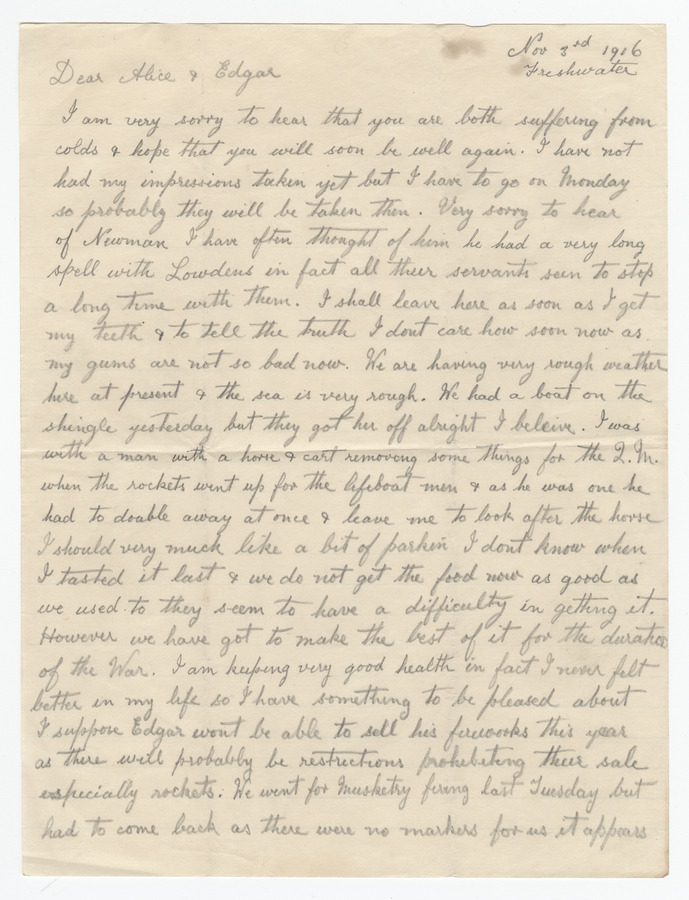 Nov 3rd 1916
Freshwater
Dear Alice & Edgar
I am very sorry to hear that you are both suffering from
colds & hope that you will soon be well again. I have not
had my impressions taken yet but I have to go on Monday
so probably they will be taken then. Very sorry to hear
of Newman I have often thought of him he had a very long
spell with Lowdens in fact all their servants seem to stop
a long time with them. I shall leave here as soon as I get
my teeth & to tell the truth I dont care how soon now as
my gums are not so bad now. We are having very rough weather
here at present & the sea is very rough. We had a boat on the
shingle yesterday but they got her off alright I beleive. I was
with a man with a horse & cart removong some things for the Q.M.
when the rockets went up for the lifeboat men & as he was one he
had to double away at once & leave me to look after the horse
I should very much like a bit of parkin I dont know when
I tasted it last & we do not get the food now as good as
we used to they seem to have a difficulty in getting it.
However we have got to make the best of it for the duration
of the War. I am keeping very good health in fact I never felt
better in my life so I have something to be pleased about
I suppose Edgar wont be able to sell his fireworks this year
as there will probably be restrictions prohibiting their sale
especially rockets. We went for Musketry firing last Tuesday but
had to come back as there were no markers for us it appears